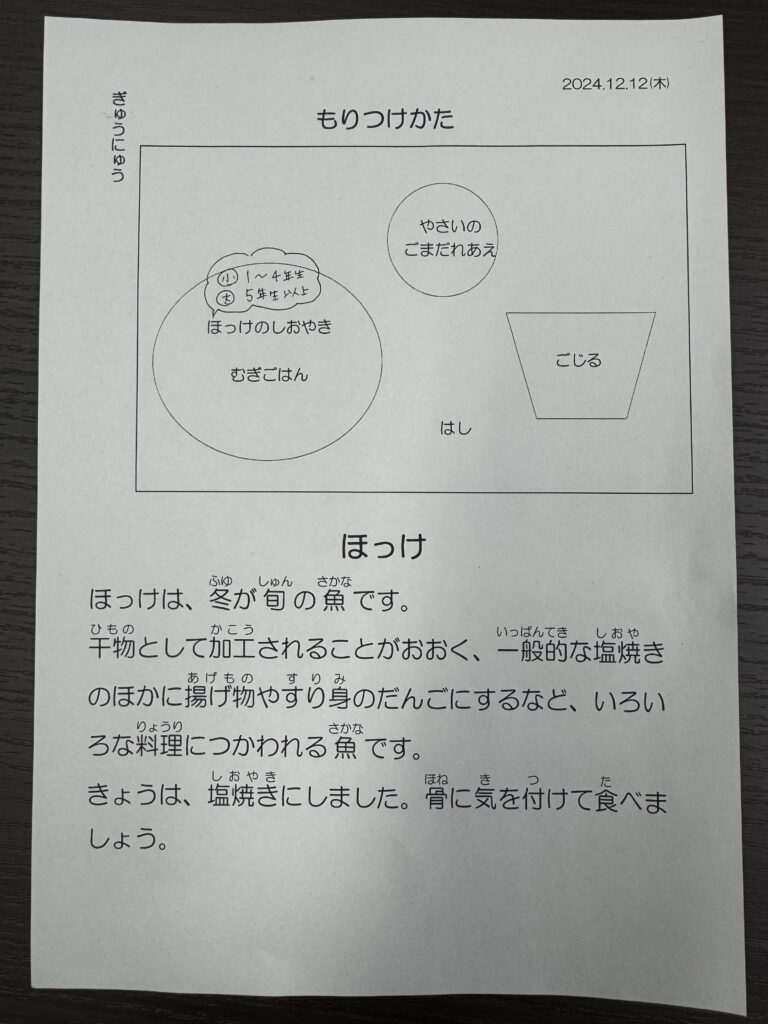 2024.12.12(木)
もりつけかた
ぎゅうにゅう
やさいの
ごまだれあえ
小 1〜4年生
大 5年生以上
ほっけのしおやき
むぎごはん
ごじる
はし
ほっけ
ふゆ しゅん さかな
ほっけは、冬が旬の魚です。
ひもの かこう いっぱんてき しおや
干物として加工されることがおおく、一般的な塩焼き
あげもの すりみ
のほかに揚げ物やすり身のだんごにするなど、いろい
りょうり さかな
ろな料理につかわれる魚です。
しおやき ほね き つ た
きょうは、塩焼きにしました。骨に気を付けて食べま
しょう。